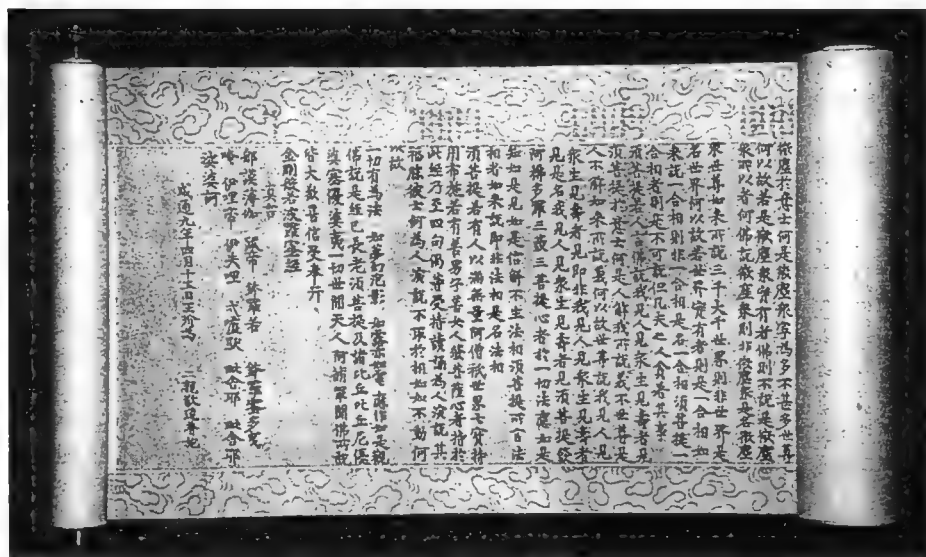 微塵於意云何是微塵眾寧為多不甚多世尊
何以故若是微塵眾實有者佛則不說是微塵
眾所以者何佛說微塵眾則非微塵眾是名微塵
眾世尊如來所說三千大千世界則非世界是
名世界何以故若世界實有者則是一合相如
來說一合相則非一合相是名一合相須菩提一
合相者則是不可說但凡夫之人貪著其事
須菩提若人言佛說我見人見眾生見壽者見
須菩提於意云何是人解我所說義不世尊是
人不解如來所說義何以故世尊說我見人見
眾生見壽者見即非我見人見眾生見壽者
見是名我見人見眾生見壽者見須菩提發
阿耨多羅三藐三菩提心者於一切法應如是
知如是見如是信解不生法相須菩提所言法
相者如來說即非法相是名法相
須菩提若有人以滿無量阿僧祇世界七寶持
用布施若有善男子善女人發菩薩心者持於
此經乃至四句偈等受持讀誦為人演說其
福勝彼云何為人演說不取於相如如不動何
以故
一切有為法 如夢幻泡影 如露亦如電 應作如是觀
佛說是經已長老須菩提及諸比丘比丘尼優
婆塞優婆夷一切世間天人阿修羅聞佛所說
皆大歡喜信受奉行
金剛般若波羅蜜經
真言
那謨薄伽 跋帝 鉢羅若 鉢羅蜜多曳
唵 伊哩帝 伊失哩 戍嚧馱 毗舍耶 毗舍耶
娑婆訶
咸通九年四月十五日王玠為 二親敬造普施